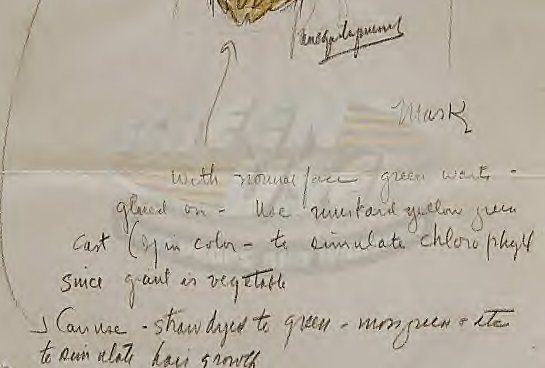 Mask
with normal face green warts -
glued on - Use mustard yellow green
cast in color - to simulate chlorophyll
since giant is vegetable
Can use - straw dyed to green - moss green & etc
to simulate hair growth